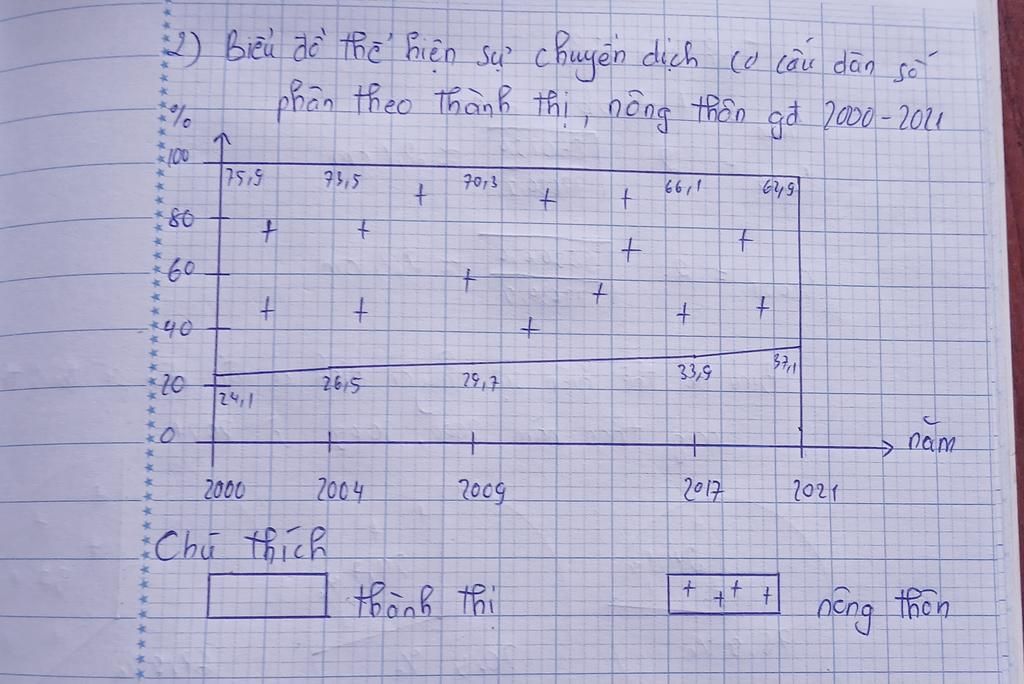 2) Biểu đồ thể hiện sự chuyển dịch cơ cấu dân số
phân theo thành thị, nông thôn gđ 2000-2021
%
100
75,9 73,5 70,3 66,1 62,9
80
60
40
20
24,1 26,5 29,7 33,9 37,1
0
năm
2000 2004 2009 2017 2021
Chú thích
thành thị nông thôn